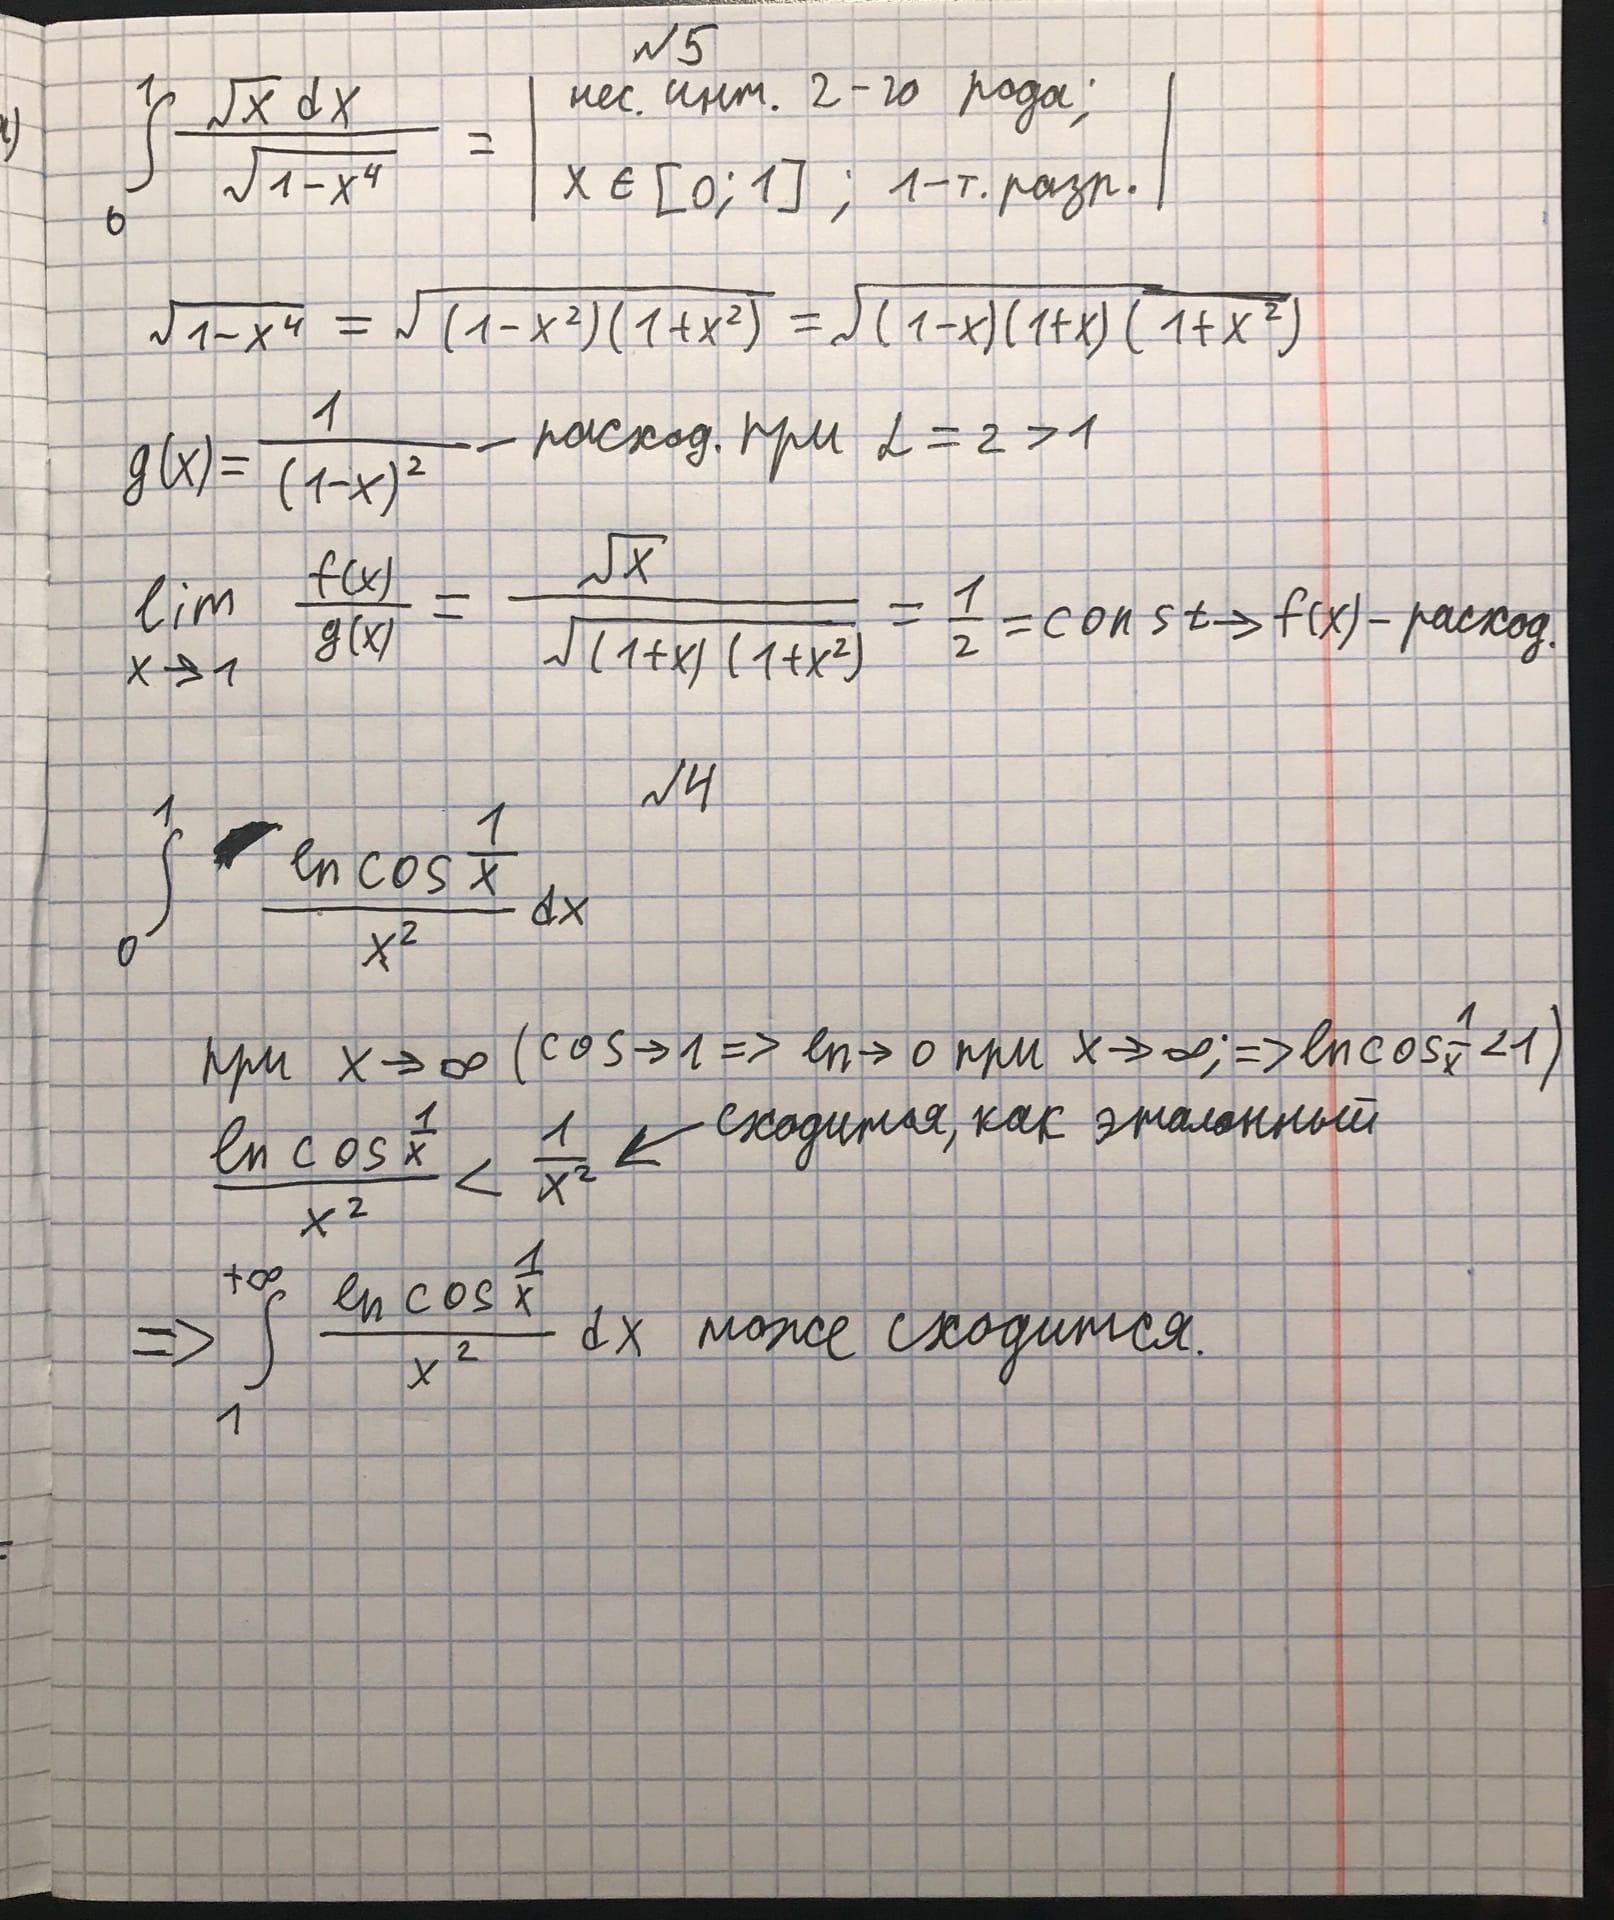 №5
∫₀¹ √x dx / √(1-x⁴) = | нес. инт. 2-го рода;
x ∈ [0; 1] ; 1-т. разр. |
√(1-x⁴) = √((1-x²)(1+x²)) = √((1-x)(1+x)(1+x²))
g(x) = 1/(1-x)² - расход. при α = 2 > 1
lim x→1 f(x)/g(x) = √x / √((1+x)(1+x²)) = 1/2 = const → f(x) - расход.
√4
∫₀¹ ln cos 1/x / x² dx
при x→∞ (cos→1 => ln→0 при x→∞; => ln cos 1/x < 1)
ln cos 1/x / x² < 1/x² ← сходится, как эталонный
=> ∫₁^+∞ ln cos 1/x / x² dx може сходится.